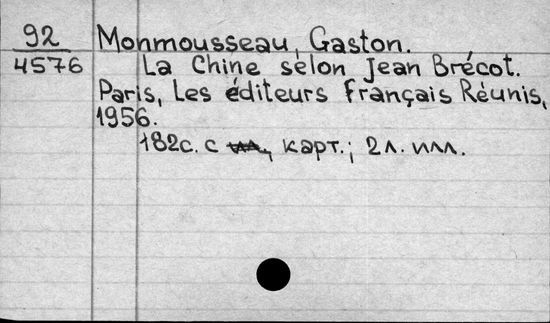 92
4576
Monmousseau, Gaston.
La Chine selon Jean Brécot.
Paris, Les éditeurs français Réunis,
1956.
182с. с карт.; 2л. илл.